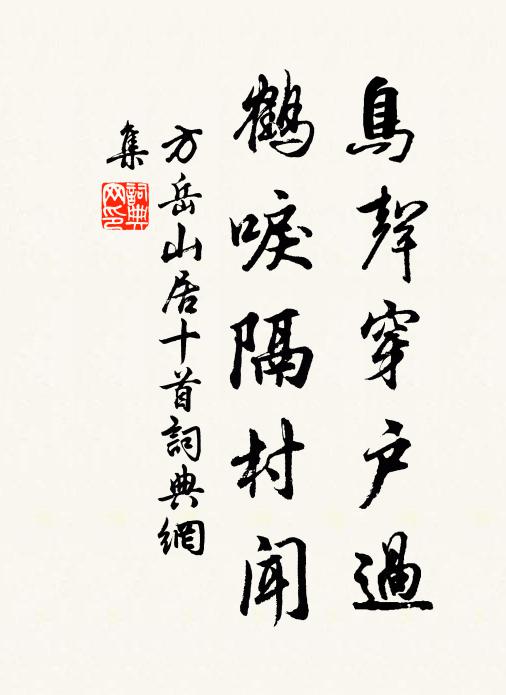 鳥聲穿戶過
鶴唳隔村聞
方岳山居十首詞典網
集
詞典
网印